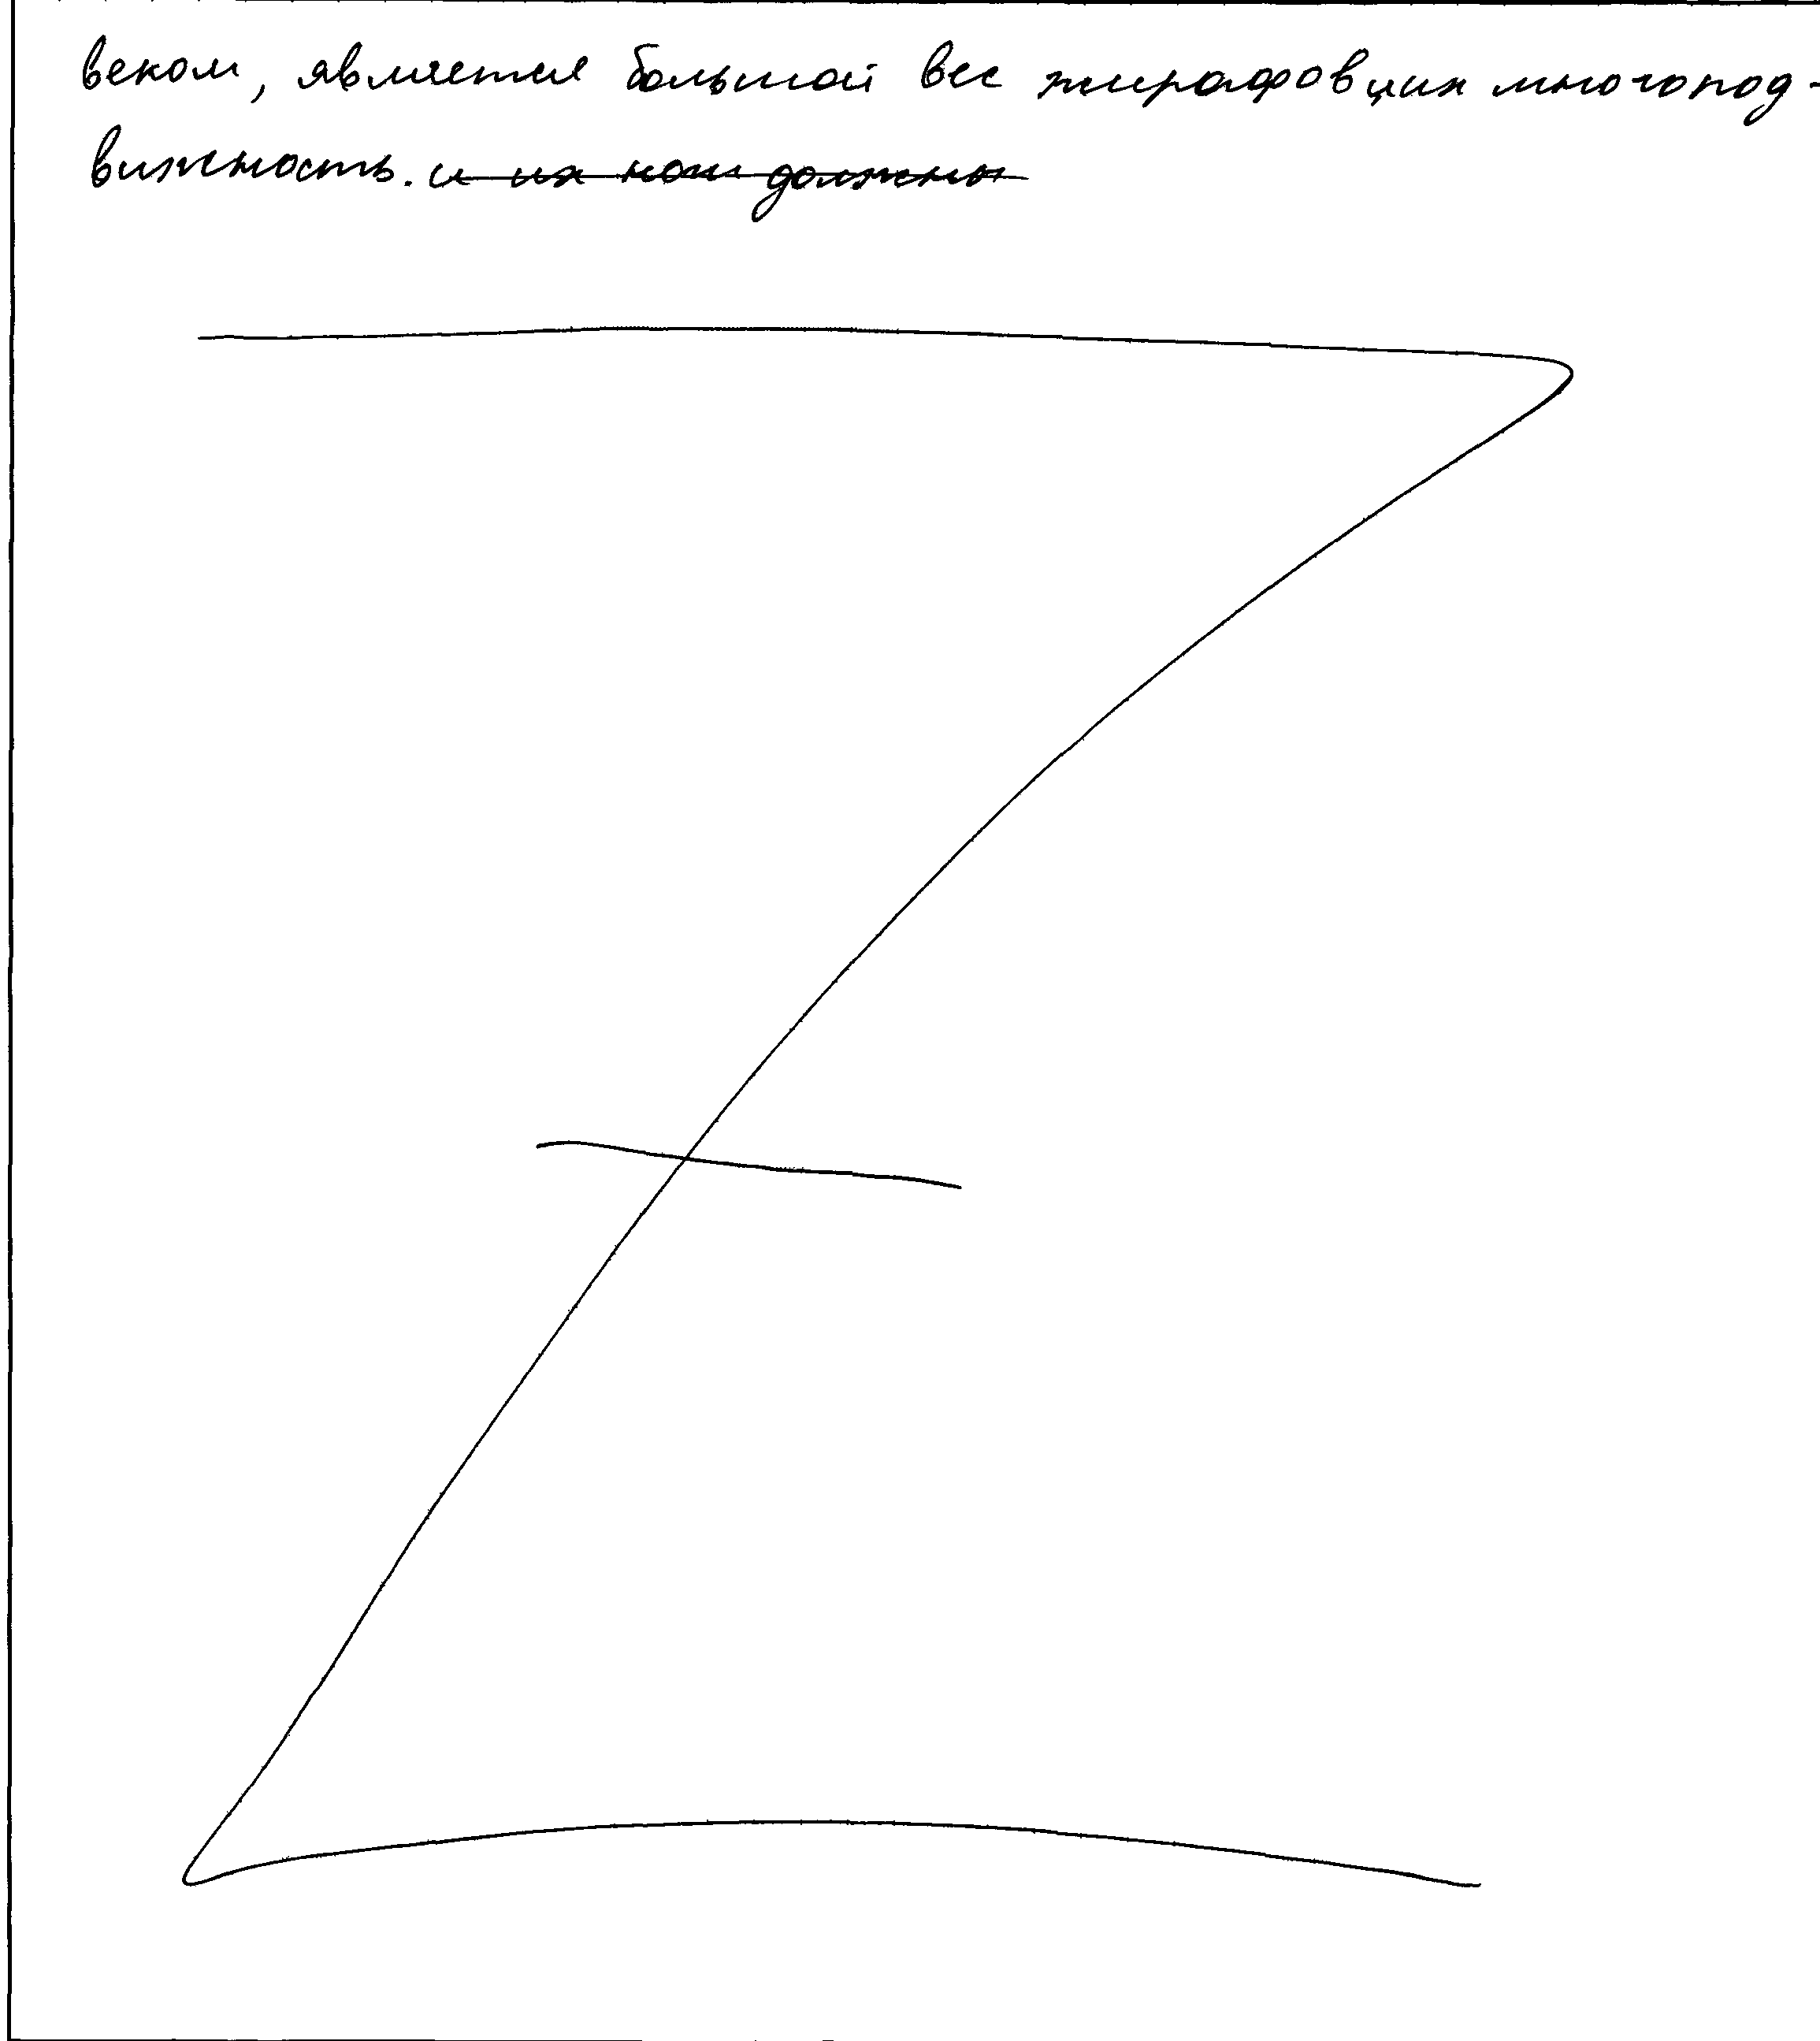 веком, является большой вес жирафов и их многопод-
вижность. и их ноги должны